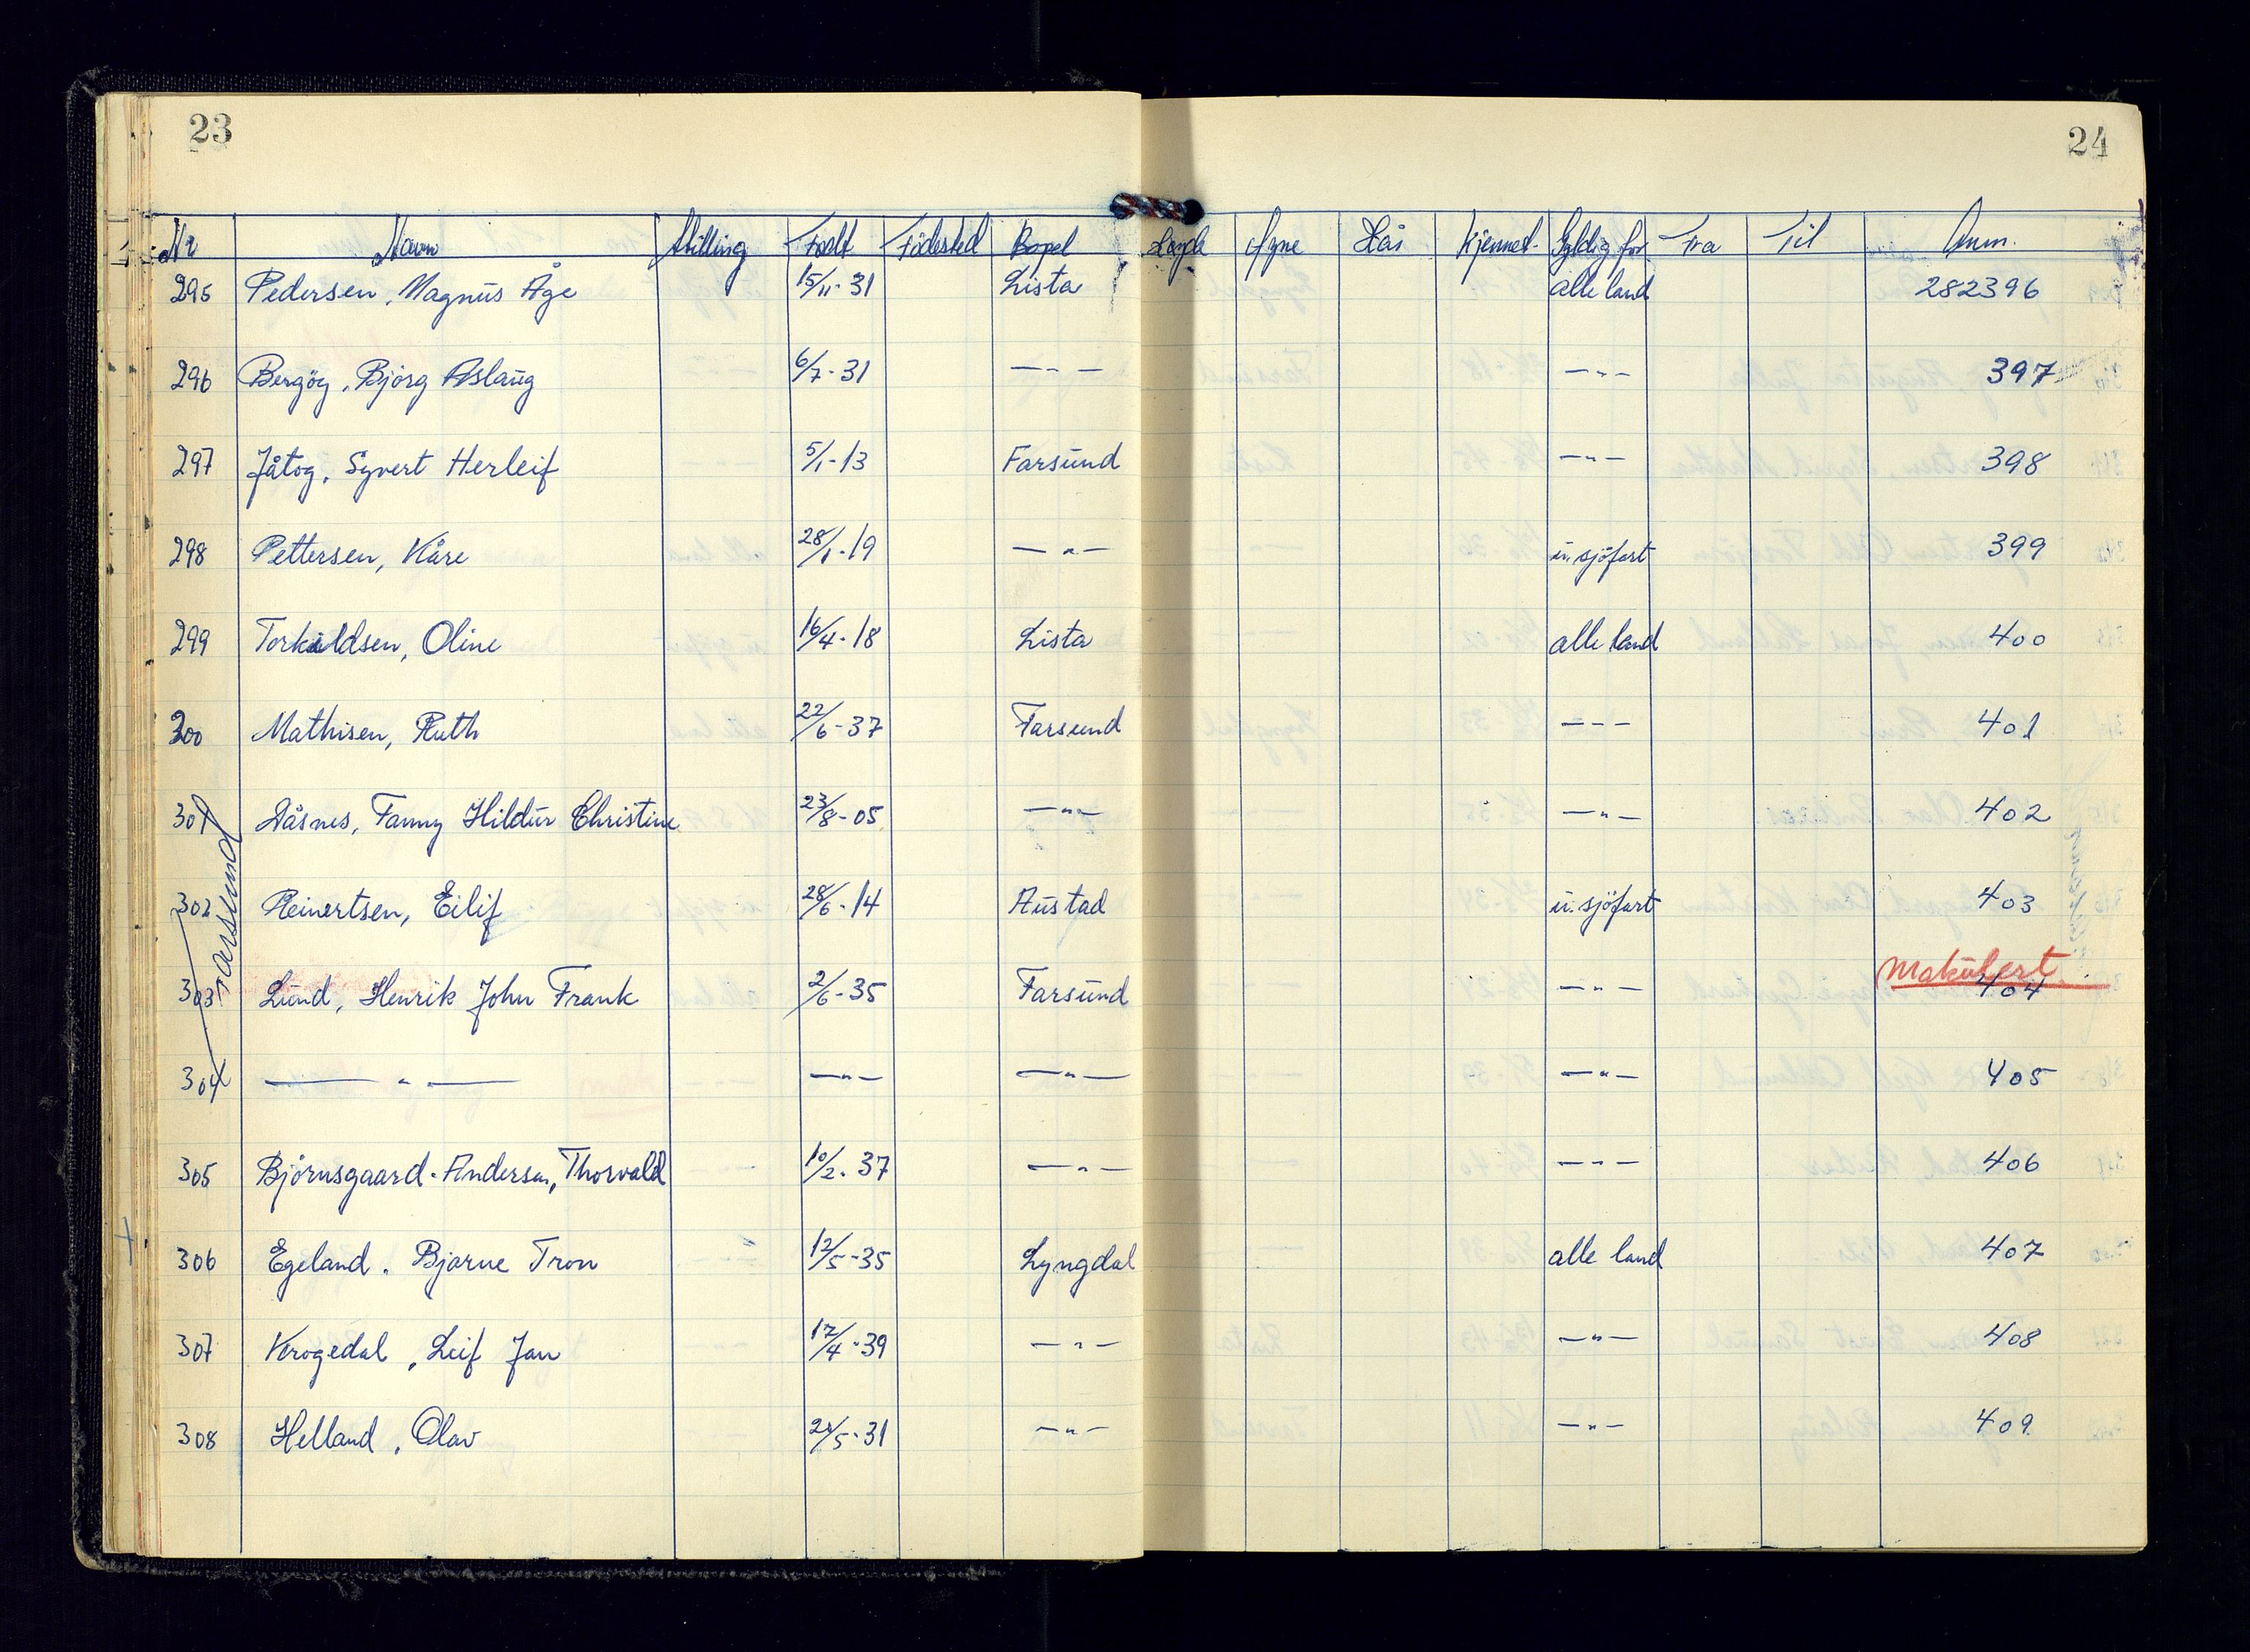 23
24
Nr Navn Stilling Født Födested Bopel Høyde Øyne Hår Kjennet. Gyldig for Fra Til Anm.
295 Pedersen, Magnus Åge 15/11-31 Lista alle land 282396
296 Bergög, Bjørg Aslaug 6/7-31 —"— —"— 397
297 Jåtog, Syvert Herleif 5/1-13 Farsund —"— 398
298 Pettersen, Kåre 28/1-19 —"— u. sjöfart 399
299 Torkildsen, Oline 16/4-18 Lista alle land 400
300 Mathisen, Ruth 22/6-37 Farsund —"— 401
301 Dåsnes, Fanny Hildur Christine 23/8-05 —"— —"— 402
302 Reinertsen, Eilif 28/6-14 Austad u. sjöfart 403
Farsund
makulert
303 Lund, Henrik John Frank 2/6-35 Farsund —"— 404
304 —"— —"— —"— —"— 405
305 Björnsgaard-Andersen, Thorvald 10/2-37 —"— —"— 406
306 Egeland, Bjarne Tron 12/5-35 Lyngdal alle land 407
307 Krogedal, Leif Jan 17/4-39 —"— —"— 408
308 Helland, Olav 24/5-31 —"— —"— 409